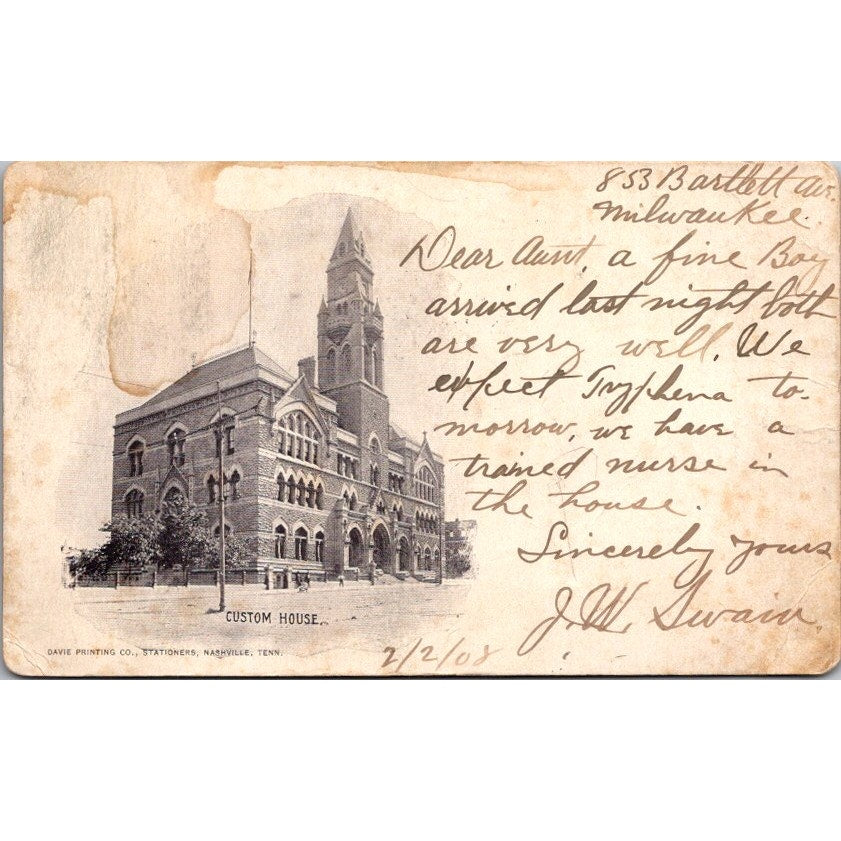 853 Bartlett Ave.
Milwaukee.
Dear Aunt, a fine Boy
arrived last night both
are very well. We
expect Tryphena to-
morrow, we have a
trained nurse in
the house.
Sincereby yours
J. W. Swain.
2/2/08
CUSTOM HOUSE.
DAVIE PRINTING CO., STATIONERS, NASHVILLE, TENN.